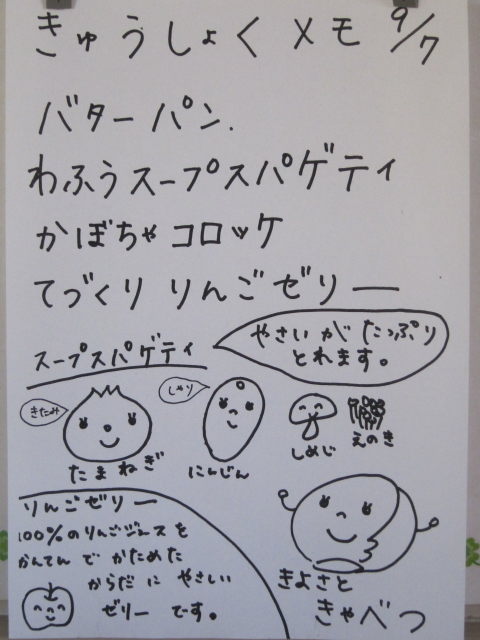 きゅうしょく メモ 9/7
バターパン.
わふうスープスパゲティ
かぼちゃコロッケ
てづくり りんごゼリー
スープスパゲティ
やさいが たっぷり
とれます。
きたみ
たまねぎ
しゃり
にんじん
しめじ
えのき
きよさと
きゃべつ
りんごゼリー
100%のりんごジュースを
かんてんで かためた
からだに やさしい
ゼリーです。